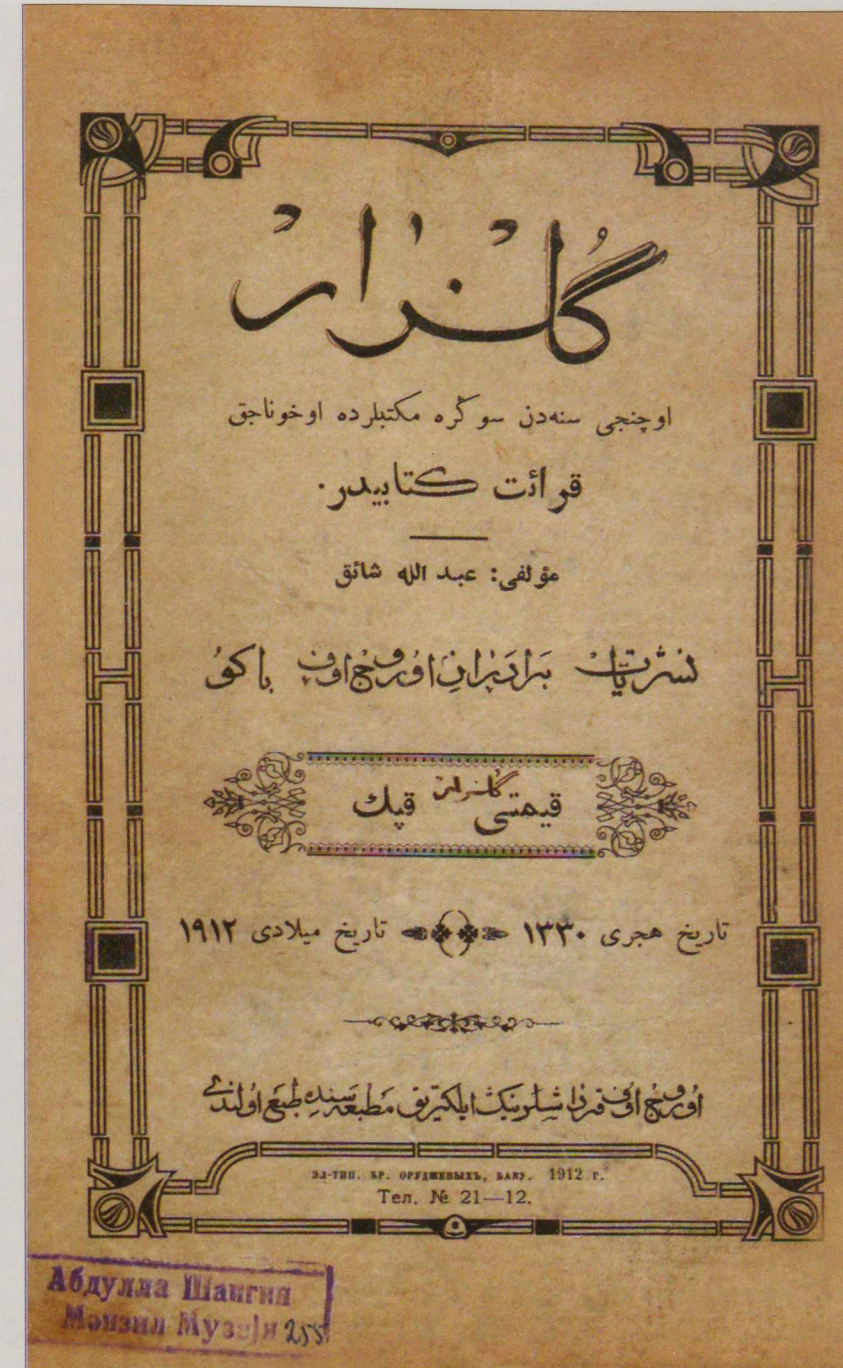 گلزار
اوچنجی سنه‌دن سوڭره مکتبلرده اوخوناجق
قرائت کتابیدر.
مؤلفی: عبد الله شائق
نشریات برادران اوروج اوف باکو
قیمتی گلزار قپك
تاریخ هجری ١٣٣٠ تاریخ میلادی ١٩١٢
اوروج اوف قرداشلرینڭ ایلیکتریق مطبعه‌سنده طبع اولندی
ЭЛ-ТИП. БР. ОРУДЖЕВЫХЪ, БАКУ. 1912 г.
Тел. № 21—12.
Абдулла Шаигин
Мәнзил Музеји 255